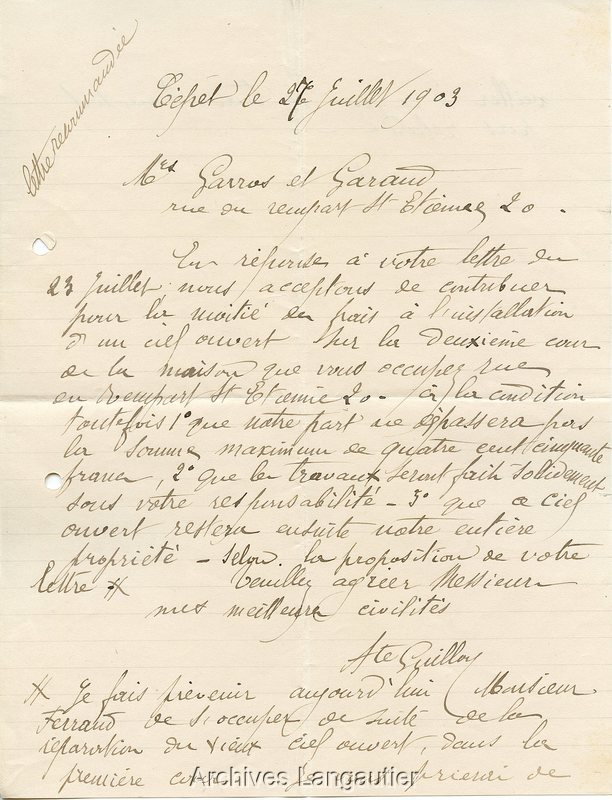 lettre recommandée
le 27 Juillet 1903
Mrs Garros et Garaud
rue du rempart St Etienne 20.
En réponse à votre lettre du
23 Juillet nous acceptons de contribuer
pour la moitié des frais à l'installation
d'un ciel ouvert sur la deuxième cour
de la maison que vous occupez rue
du Rempart St Etienne 20. à la condition
toutefois 1° que notre part ne dépassera pas
la somme maximum de quatre cent cinquante
francs, 2° que les travaux seront faits solidement
sous votre responsabilité - 3° que ce ciel
ouvert restera ensuite notre entière
propriété - selon la proposition de votre
lettre # Veuillez agréer Messieurs
mes meilleures civilités
Ate Guilloy
# Je fais prévenir aujourd'hui Monsieur
Ferrand de s'occuper de suite de la
réparation du vieux ciel ouvert, dans la
première de
Archives Langautier